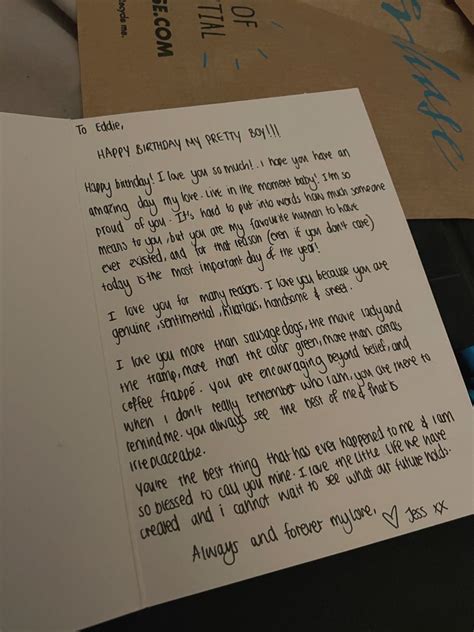 OF
TIAL
SE.COM
ecycle me.
To Eddie,
HAPPY BIRTHDAY MY PRETTY BOY!!!
Happy birthday! I love you so much!. I hope you have an
amazing day my love. Live in the moment baby! I'm so
proud of you. It's hard to put into words how much someone
means to you, but you are my favourite human to have
ever existed, and for that reason (even if you don't care)
today is the most important day of the year!
I love you for many reasons. I love you because you are
genuine, sentimental, hilarious, handsome & sweet.
I love you more than sausage dogs, the movie lady and
the tramp, more than the color green, more than costas
coffee frappé. you are encouraging beyond belief, and
when I don't really remember who I am, you are there to
remind me. you always see the best of me & that is
irreplaceable.
You're the best thing that has ever happened to me & I am
so blessed to call you mine. I love the little life we have
created and i cannot wait to see what our future holds.
Always and forever my love, ♡ Jess xx